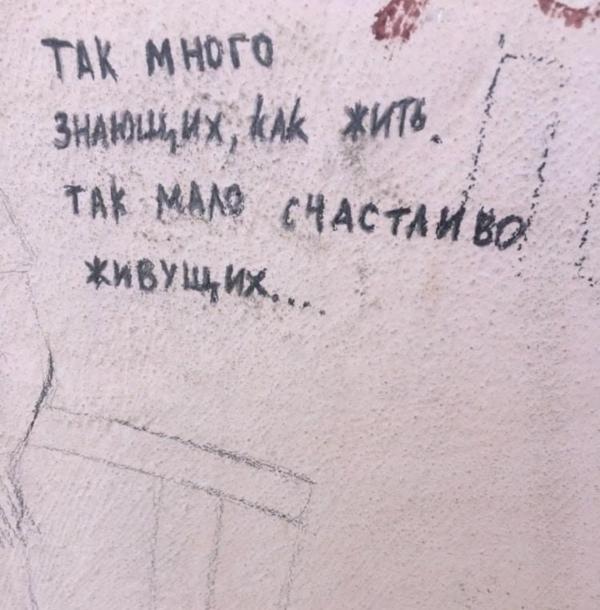 ТАК МНОГО
ЗНАЮЩИХ, КАК ЖИТЬ.
ТАК МАЛО СЧАСТЛИВО
ЖИВУЩИХ....